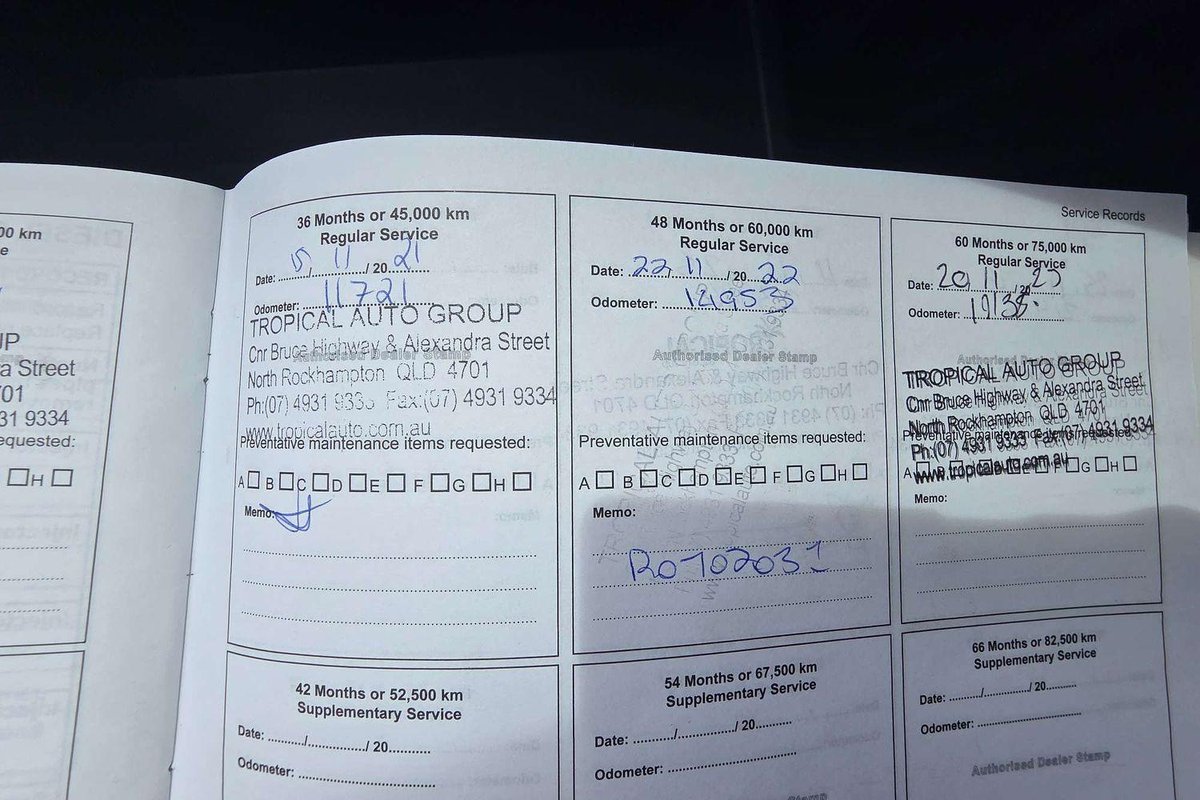 Service Records
00 km
36 Months or 45,000 km
Regular Service
Date: 15/11/2021
Odometer: 11721
TROPICAL AUTO GROUP
Authorised Dealer Stamp
Cnr Bruce Highway & Alexandra Street
North Rockhampton QLD 4701
Ph:(07) 4931 9333 Fax:(07) 4931 9334
www.tropicalauto.com.au
Preventative maintenance items requested:
A B C D E F G H
Memo:
48 Months or 60,000 km
Regular Service
Date: 22/11/2022
Odometer:
Authorised Dealer Stamp
Preventative maintenance items requested:
A B C D E F G H
Memo:
RO702031
60 Months or 75,000 km
Regular Service
Date: 20/11/20
Odometer:
Authorised Dealer Stamp
TROPICAL AUTO GROUP
Cnr Bruce Highway & Alexandra Street
North Rockhampton QLD 4701
Ph:(07) 4931 9333 Fax:(07) 4931 9334
Preventative maintenance items requested:
www.tropicalauto.com.au
Memo:
UP
ra Street
701
931 9334
equested:
H
42 Months or 52,500 km
Supplementary Service
Date: ........../............../ 20...........
Odometer:
54 Months or 67,500 km
Supplementary Service
Date: ........../............../ 20..........
Odometer:
Stamp
66 Months or 82,500 km
Supplementary Service
Date: ........../............../ 20..........
Odometer:
Authorised Dealer Stamp